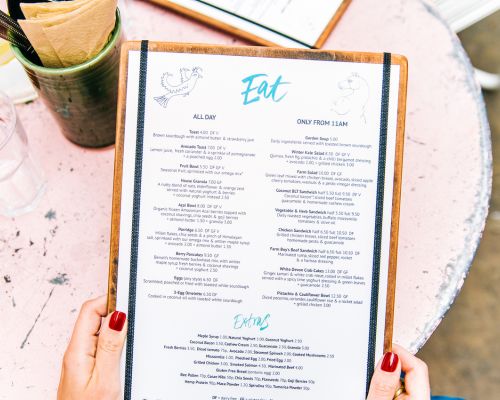 Eat
ALL DAY
Toast 4.00 DF V
Brown sourdough with almond butter & strawberry jam
Avocado Toast 7.00 DF V
Lemon juice, fresh coriander & a sprinkle of pomegranate
+ a poached egg 2.00
Fruit Bowl 5.50 DF V
Seasonal fruit, sprinkled with our omega mix
House Granola 7.00 DF V
coconut yoghurt instead 2.50
Acai Bowl 8.00 DF V
Organic frozen Amazonian Acai berries topped with
coconut shavings, chia seeds & goji berries
+ almond butter 1.50 + granola 3.00
Porridge 6.50 DF V
Millet flakes, chia seeds & a pinch of Himalayan
salt, sprinkled with our omega mix & amber maple syrup
+ avocado 2.00 + almond butter 1.50
Berry Pancakes 9.50
maple syrup fresh berries & coconut shavings
+ coconut yoghurt 2.50
Eggs (any style) 6.50 DF
Scrambled, poached or fried with toasted white sourdough
3-Egg Omelette 6.50 DF
Cooked in coconut oil with toasted white sourdough
ONLY FROM 11AM
Garden Soup 5.00
Daily ingredients served with toasted brown sourdough
Winter Kale Salad 8.50 DF V GF
Quinoa, fresh fig, pistachio & a chilli bergamot dressing
+ avocado 2.00 + grilled chicken 3.00
Farm Salad 12.00 GF
Green leaf mixed with chicken breast, avocado, sliced apple
cherry tomatoes, walnuts & a yondo vinegar dressing
Coconut BLT Sandwich half 5.50 full 9.50
Coconut bacon, sliced beef tomatoes
guacamole & homemade cashew cream
Vegetable & Herb Sandwich half 5.50 full 9.50
tomatoes & olive oil
Chicken Sandwich half 6.50 full 10.50 DF
Grilled chicken breast, sliced beef tomatoes
homemade pesto & guacamole
Farm Boy's Beef Sandwich half 6.50 full 10.50
Marinated rump, sliced red pepper, rocket
& a tartare dressing
White Devon Crab Cakes 13.00 DF GF
Ginger, samari & white crab meat, rolled in millet flakes
served with a spicy lime yoghurt dressing & green leaves
+ guacamole 2.50
Pistachio & Cauliflower 12.50 DF
+ grilled chicken 3.00
Extras
Maple Syrup 1.00, Natural Yoghurt 1.00, Coconut Yoghurt 2.50
Coconut Bacon 2.50, Cashew Cream 2.50, Guacamole 2.50, Granola 3.00
Fresh Berries 3.00, Sliced tomato 75p, Avocado 2.00, Steamed Spinach 2.00, Cooked Mushrooms 2.50
Mozzarella 1.00, Poached Egg 2.00, Fried Egg 2.00
Grilled Chicken 3.00, Smoked Salmon 4.50, Marinated Beef 4.00
Gluten Free Bread (contains egg) 2.00
Bee Pollen 75p, Cacao Nibs 50p, Chia Seeds 75p, Flaxseeds 75p, Goji Berries 50p
Hemp Protein 90p, Maca Powder 1.50, Spirulina 90p, Turmeric Powder 50p